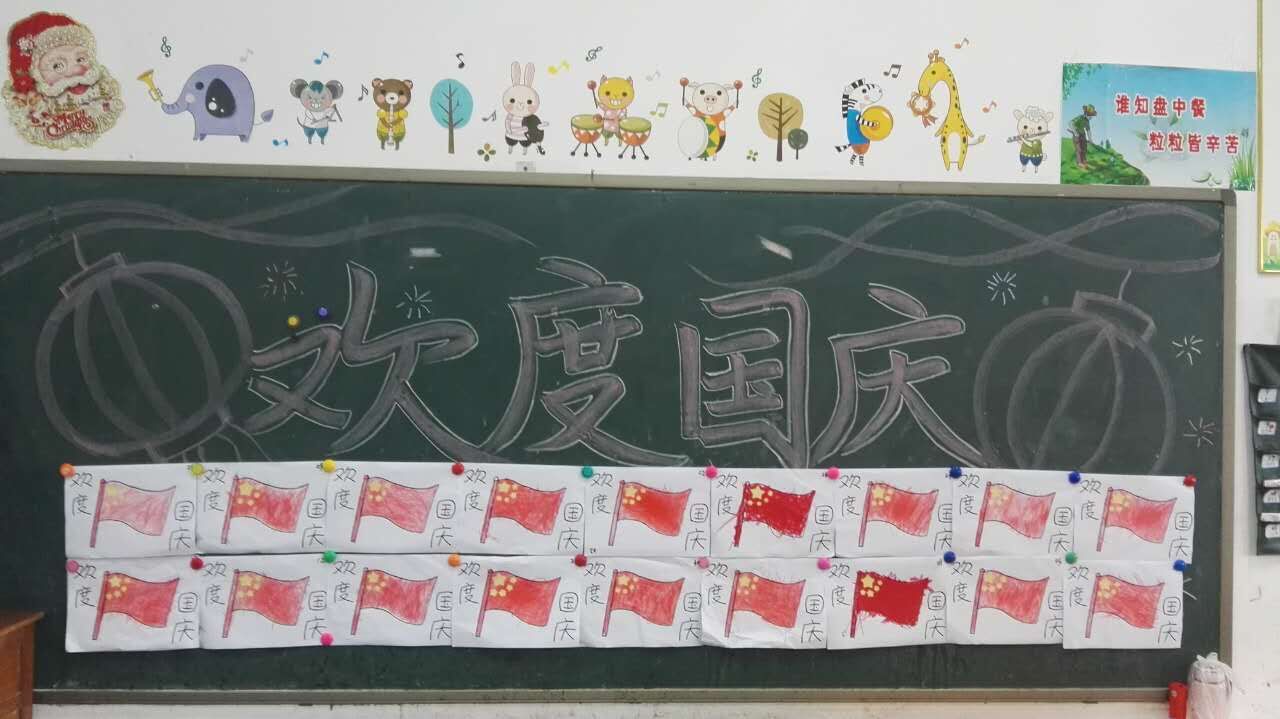 Merry Christmas
谁知盘中餐
粒粒皆辛苦
欢度国庆
欢度
国庆
欢度
国庆
欢度
国庆
欢度
国庆
欢度
国庆
欢度
国庆
欢度
国庆
欢度
国庆
欢度
国庆
欢度
国庆
欢度
国庆
欢度
国庆
欢度
国庆
欢度
国庆
欢度
国庆
欢度
国庆
欢度
国庆
欢度
国庆